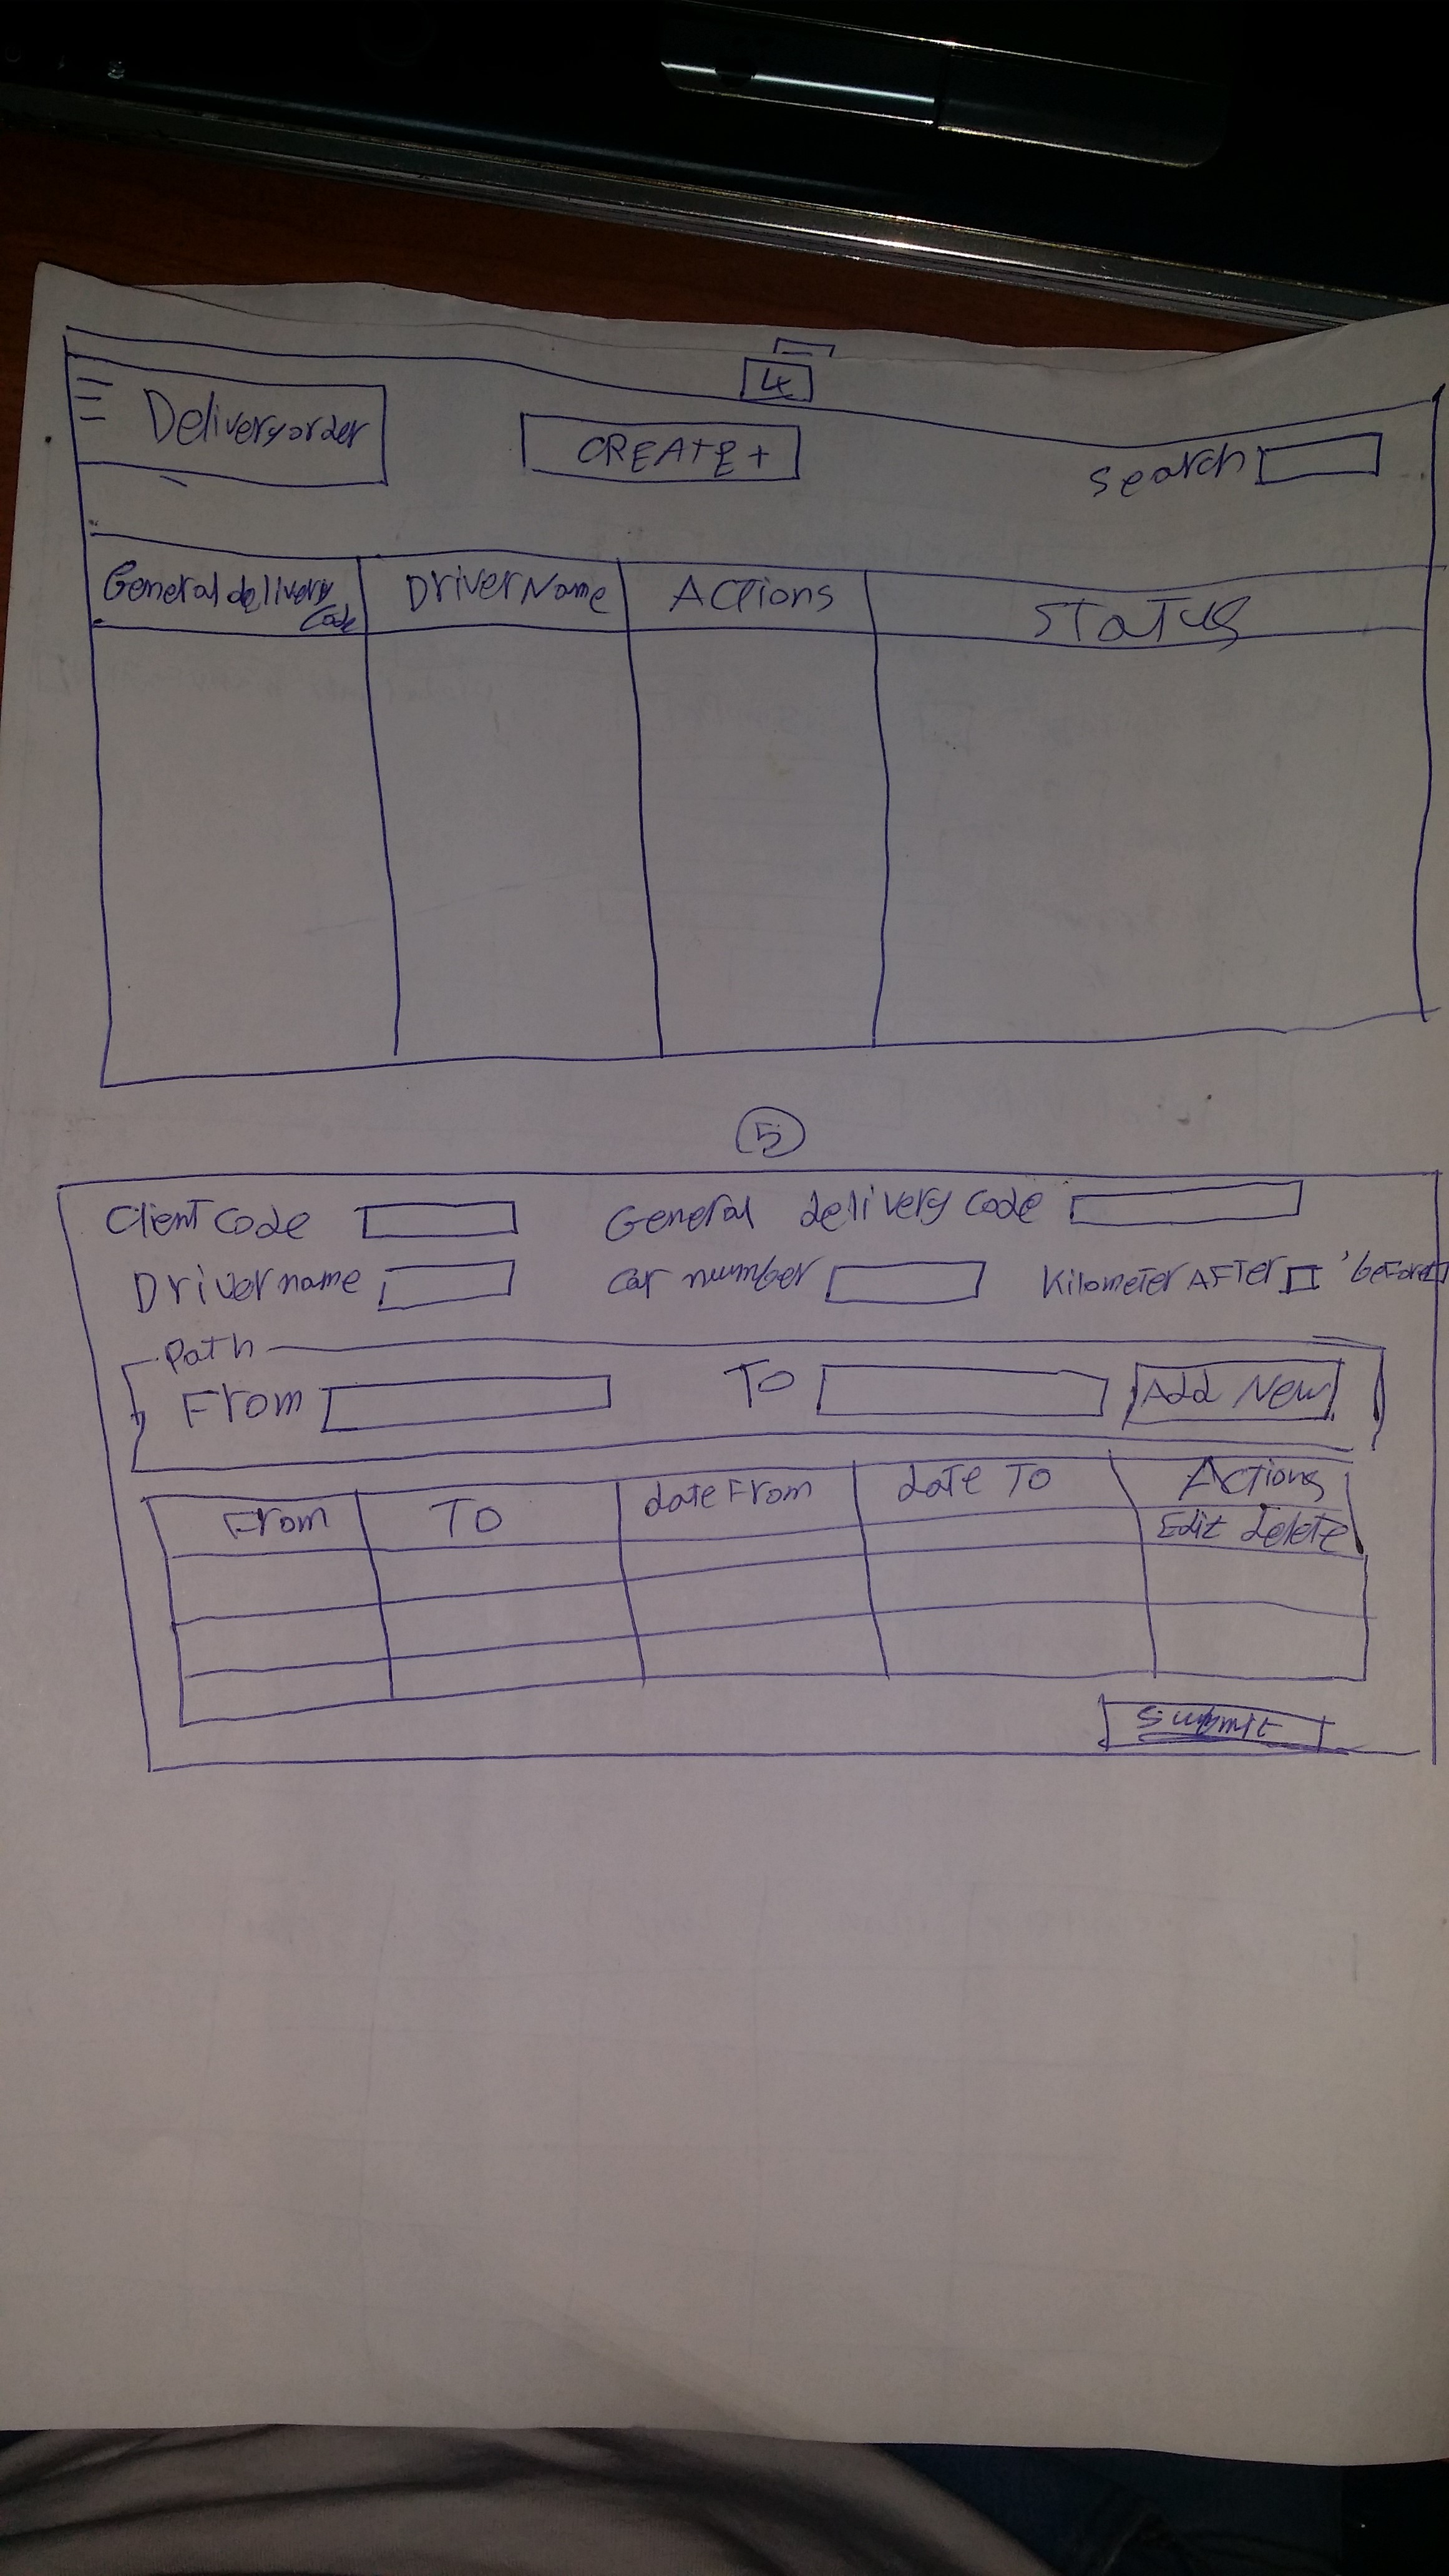 4
Deliveryorder
CREATE +
search
General delivery Code
Driver Name
Actions
Status
5
Client Code
General delivery Code
Driver name
Car number
Kilometer AFTer
before
Path
From
To
Add New
From
To
date From
date To
Actions
Edit delete
Submit